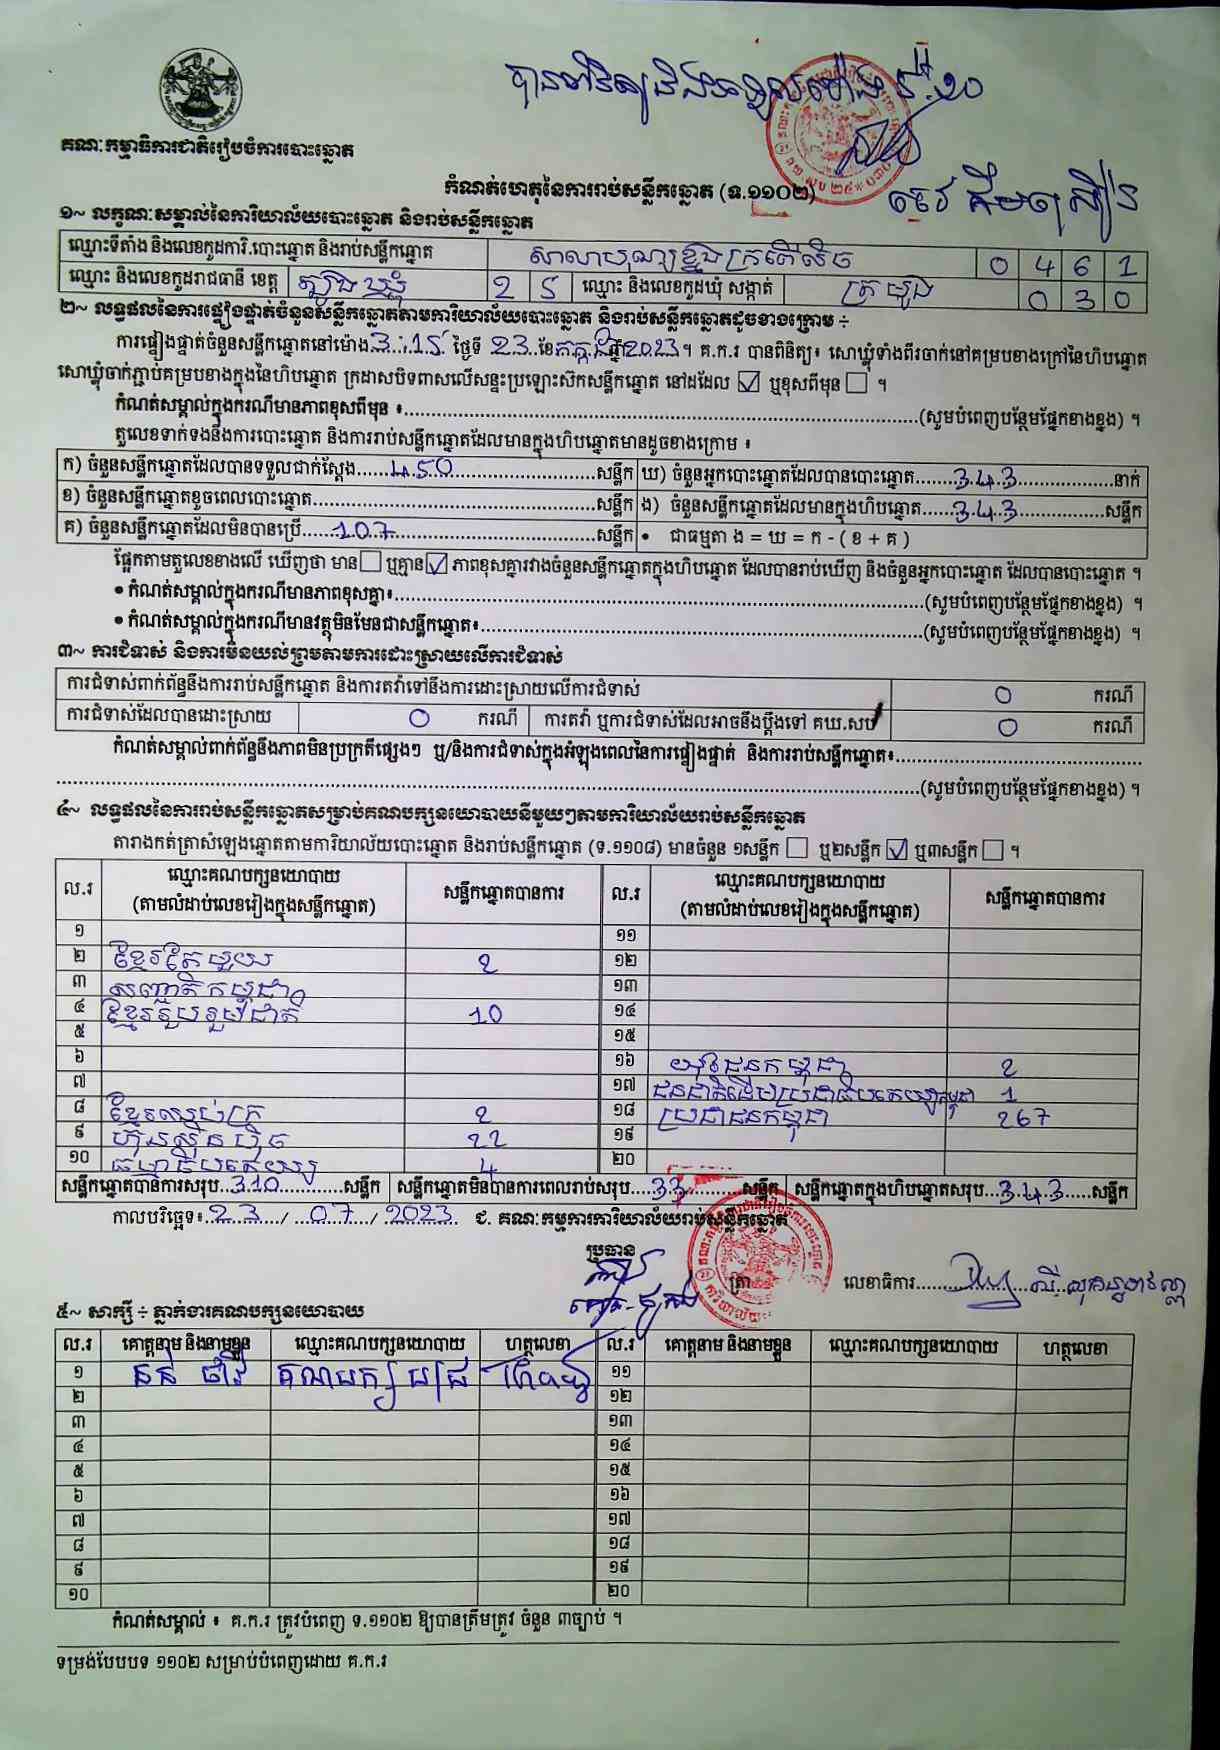 គណៈកម្មាធិការជាតិរៀបចំការបោះឆ្នោត
កំណត់ហេតុនៃការរាប់សន្លឹកឆ្នោត (ទ.១១០២)
១~ លក្ខណៈសម្គាល់នៃការិយាល័យបោះឆ្នោត និងរាប់សន្លឹកឆ្នោត
ឈ្មោះទីតាំង និងលេខកូដការិ.បោះឆ្នោត និងរាប់សន្លឹកឆ្នោត 0 4 6 1
ឈ្មោះ និងលេខកូដរាជធានី ខេត្ត ត្បូងឃ្មុំ 2 5 ឈ្មោះ និងលេខកូដឃុំ សង្កាត់ 0 3 0
២~ លទ្ធផលនៃការផ្ទៀងផ្ទាត់ចំនួនសន្លឹកឆ្នោតតាមការិយាល័យបោះឆ្នោត និងរាប់សន្លឹកឆ្នោតដូចខាងក្រោម ÷
ការផ្ទៀងផ្ទាត់ចំនួនសន្លឹកឆ្នោតនៅម៉ោង 3:15 ថ្ងៃទី 23 ខែ កក្កដា ឆ្នាំ 2023 ។ គ.ក.រ បានពិនិត្យ៖ សោឃ្លុំទាំងពីរចាក់នៅគម្របខាងក្រៅនៃហិបឆ្នោត
សោឃ្លុំចាក់ភ្ជាប់គម្របខាងក្នុងនៃហិបឆ្នោត ក្រដាសបិទពាសលើសន្ទះប្រឡោះស៊កសន្លឹកឆ្នោត នៅដដែល ☑ ឬខុសពីមុន ☐ ។
កំណត់សម្គាល់ក្នុងករណីមានភាពខុសពីមុន ៖ (សូមបំពេញបន្ថែមផ្នែកខាងខ្នង) ។
តួលេខទាក់ទងនឹងការបោះឆ្នោត និងការរាប់សន្លឹកឆ្នោតដែលមានក្នុងហិបឆ្នោតមានដូចខាងក្រោម ៖
ក) ចំនួនសន្លឹកឆ្នោតដែលបានទទួលជាក់ស្តែង 450 សន្លឹក ឃ) ចំនួនអ្នកបោះឆ្នោតដែលបានបោះឆ្នោត 343 នាក់
ខ) ចំនួនសន្លឹកឆ្នោតខូចពេលបោះឆ្នោត សន្លឹក ង) ចំនួនសន្លឹកឆ្នោតដែលមានក្នុងហិបឆ្នោត 343 សន្លឹក
គ) ចំនួនសន្លឹកឆ្នោតដែលមិនបានប្រើ 107 សន្លឹក • ជាធម្មតា ង = ឃ = ក - ( ខ + គ )
ផ្អែកតាមតួលេខខាងលើ ឃើញថា មាន ☐ ឬគ្មាន ☑ ភាពខុសគ្នារវាងចំនួនសន្លឹកឆ្នោតក្នុងហិបឆ្នោត ដែលបានរាប់ឃើញ និងចំនួនអ្នកបោះឆ្នោត ដែលបានបោះឆ្នោត ។
• កំណត់សម្គាល់ក្នុងករណីមានភាពខុសគ្នា៖ (សូមបំពេញបន្ថែមផ្នែកខាងខ្នង) ។
• កំណត់សម្គាល់ក្នុងករណីមានវត្ថុមិនមែនជាសន្លឹកឆ្នោត៖ (សូមបំពេញបន្ថែមផ្នែកខាងខ្នង) ។
៣~ ការជំទាស់ និងការមិនយល់ព្រមតាមការដោះស្រាយលើការជំទាស់
ការជំទាស់ពាក់ព័ន្ធនឹងការរាប់សន្លឹកឆ្នោត និងការតវ៉ាទៅនឹងការដោះស្រាយលើការជំទាស់ 0 ករណី
ការជំទាស់ដែលបានដោះស្រាយ 0 ករណី ការតវ៉ា ឬការជំទាស់ដែលអាចនឹងប្តឹងទៅ គឃ.សប 0 ករណី
កំណត់សម្គាល់ពាក់ព័ន្ធនឹងភាពមិនប្រក្រតីផ្សេងៗ ឬ/និងការជំទាស់ក្នុងអំឡុងពេលនៃការផ្ទៀងផ្ទាត់ និងការរាប់សន្លឹកឆ្នោត៖
(សូមបំពេញបន្ថែមផ្នែកខាងខ្នង) ។
៤~ លទ្ធផលនៃការរាប់សន្លឹកឆ្នោតសម្រាប់គណបក្សនយោបាយនីមួយៗតាមការិយាល័យរាប់សន្លឹកឆ្នោត
តារាងកត់ត្រាសំឡេងឆ្នោតតាមការិយាល័យបោះឆ្នោត និងរាប់សន្លឹកឆ្នោត (ទ.១១០៨) មានចំនួន ១សន្លឹក ☐ ឬ២សន្លឹក ☑ ឬ៣សន្លឹក ☐ ។
ល.រ ឈ្មោះគណបក្សនយោបាយ (តាមលំដាប់លេខរៀងក្នុងសន្លឹកឆ្នោត) សន្លឹកឆ្នោតបានការ ល.រ ឈ្មោះគណបក្សនយោបាយ (តាមលំដាប់លេខរៀងក្នុងសន្លឹកឆ្នោត) សន្លឹកឆ្នោតបានការ
១ ១១
២ ខ្មែរតែមួយ 2 ១២
៣ សញ្ជាតិកម្ពុជា ១៣
៤ ខ្មែររួបរួមជាតិ 10 ១៤
៥ ១៥
៦ ១៦ យុវជនកម្ពុជា 2
៧ ១៧ ជនជាតិដើមប្រជាធិបតេយ្យកម្ពុជា 1
៨ ខ្មែរឈប់ក្រ 2 ១៨ ប្រជាជនកម្ពុជា 267
៩ ហ៊្វុនស៊ិនប៉ិច 22 ១៩
១០ ធម្មាធិបតេយ្យ 4 ២០
សន្លឹកឆ្នោតបានការសរុប 310 សន្លឹក សន្លឹកឆ្នោតមិនបានការពេលរាប់សរុប 33 សន្លឹក សន្លឹកឆ្នោតក្នុងហិបឆ្នោតសរុប 343 សន្លឹក
កាលបរិច្ឆេទ៖ 23 / 07 / 2023 ជ. គណៈកម្មការការិយាល័យរាប់សន្លឹកឆ្នោត
ប្រធាន ត្រា លេខាធិការ
៥~ សាក្សី ÷ ភ្នាក់ងារគណបក្សនយោបាយ
ល.រ គោត្តនាម និងនាមខ្លួន ឈ្មោះគណបក្សនយោបាយ ហត្ថលេខា ល.រ គោត្តនាម និងនាមខ្លួន ឈ្មោះគណបក្សនយោបាយ ហត្ថលេខា
១ គណបក្ស ១១
២ ១២
៣ ១៣
៤ ១៤
៥ ១៥
៦ ១៦
៧ ១៧
៨ ១៨
៩ ១៩
១០ ២០
កំណត់សម្គាល់ ៖ គ.ក.រ ត្រូវបំពេញ ទ.១១០២ ឱ្យបានត្រឹមត្រូវ ចំនួន ៣ច្បាប់ ។
ទម្រង់បែបបទ ១១០២ សម្រាប់បំពេញដោយ គ.ក.រ